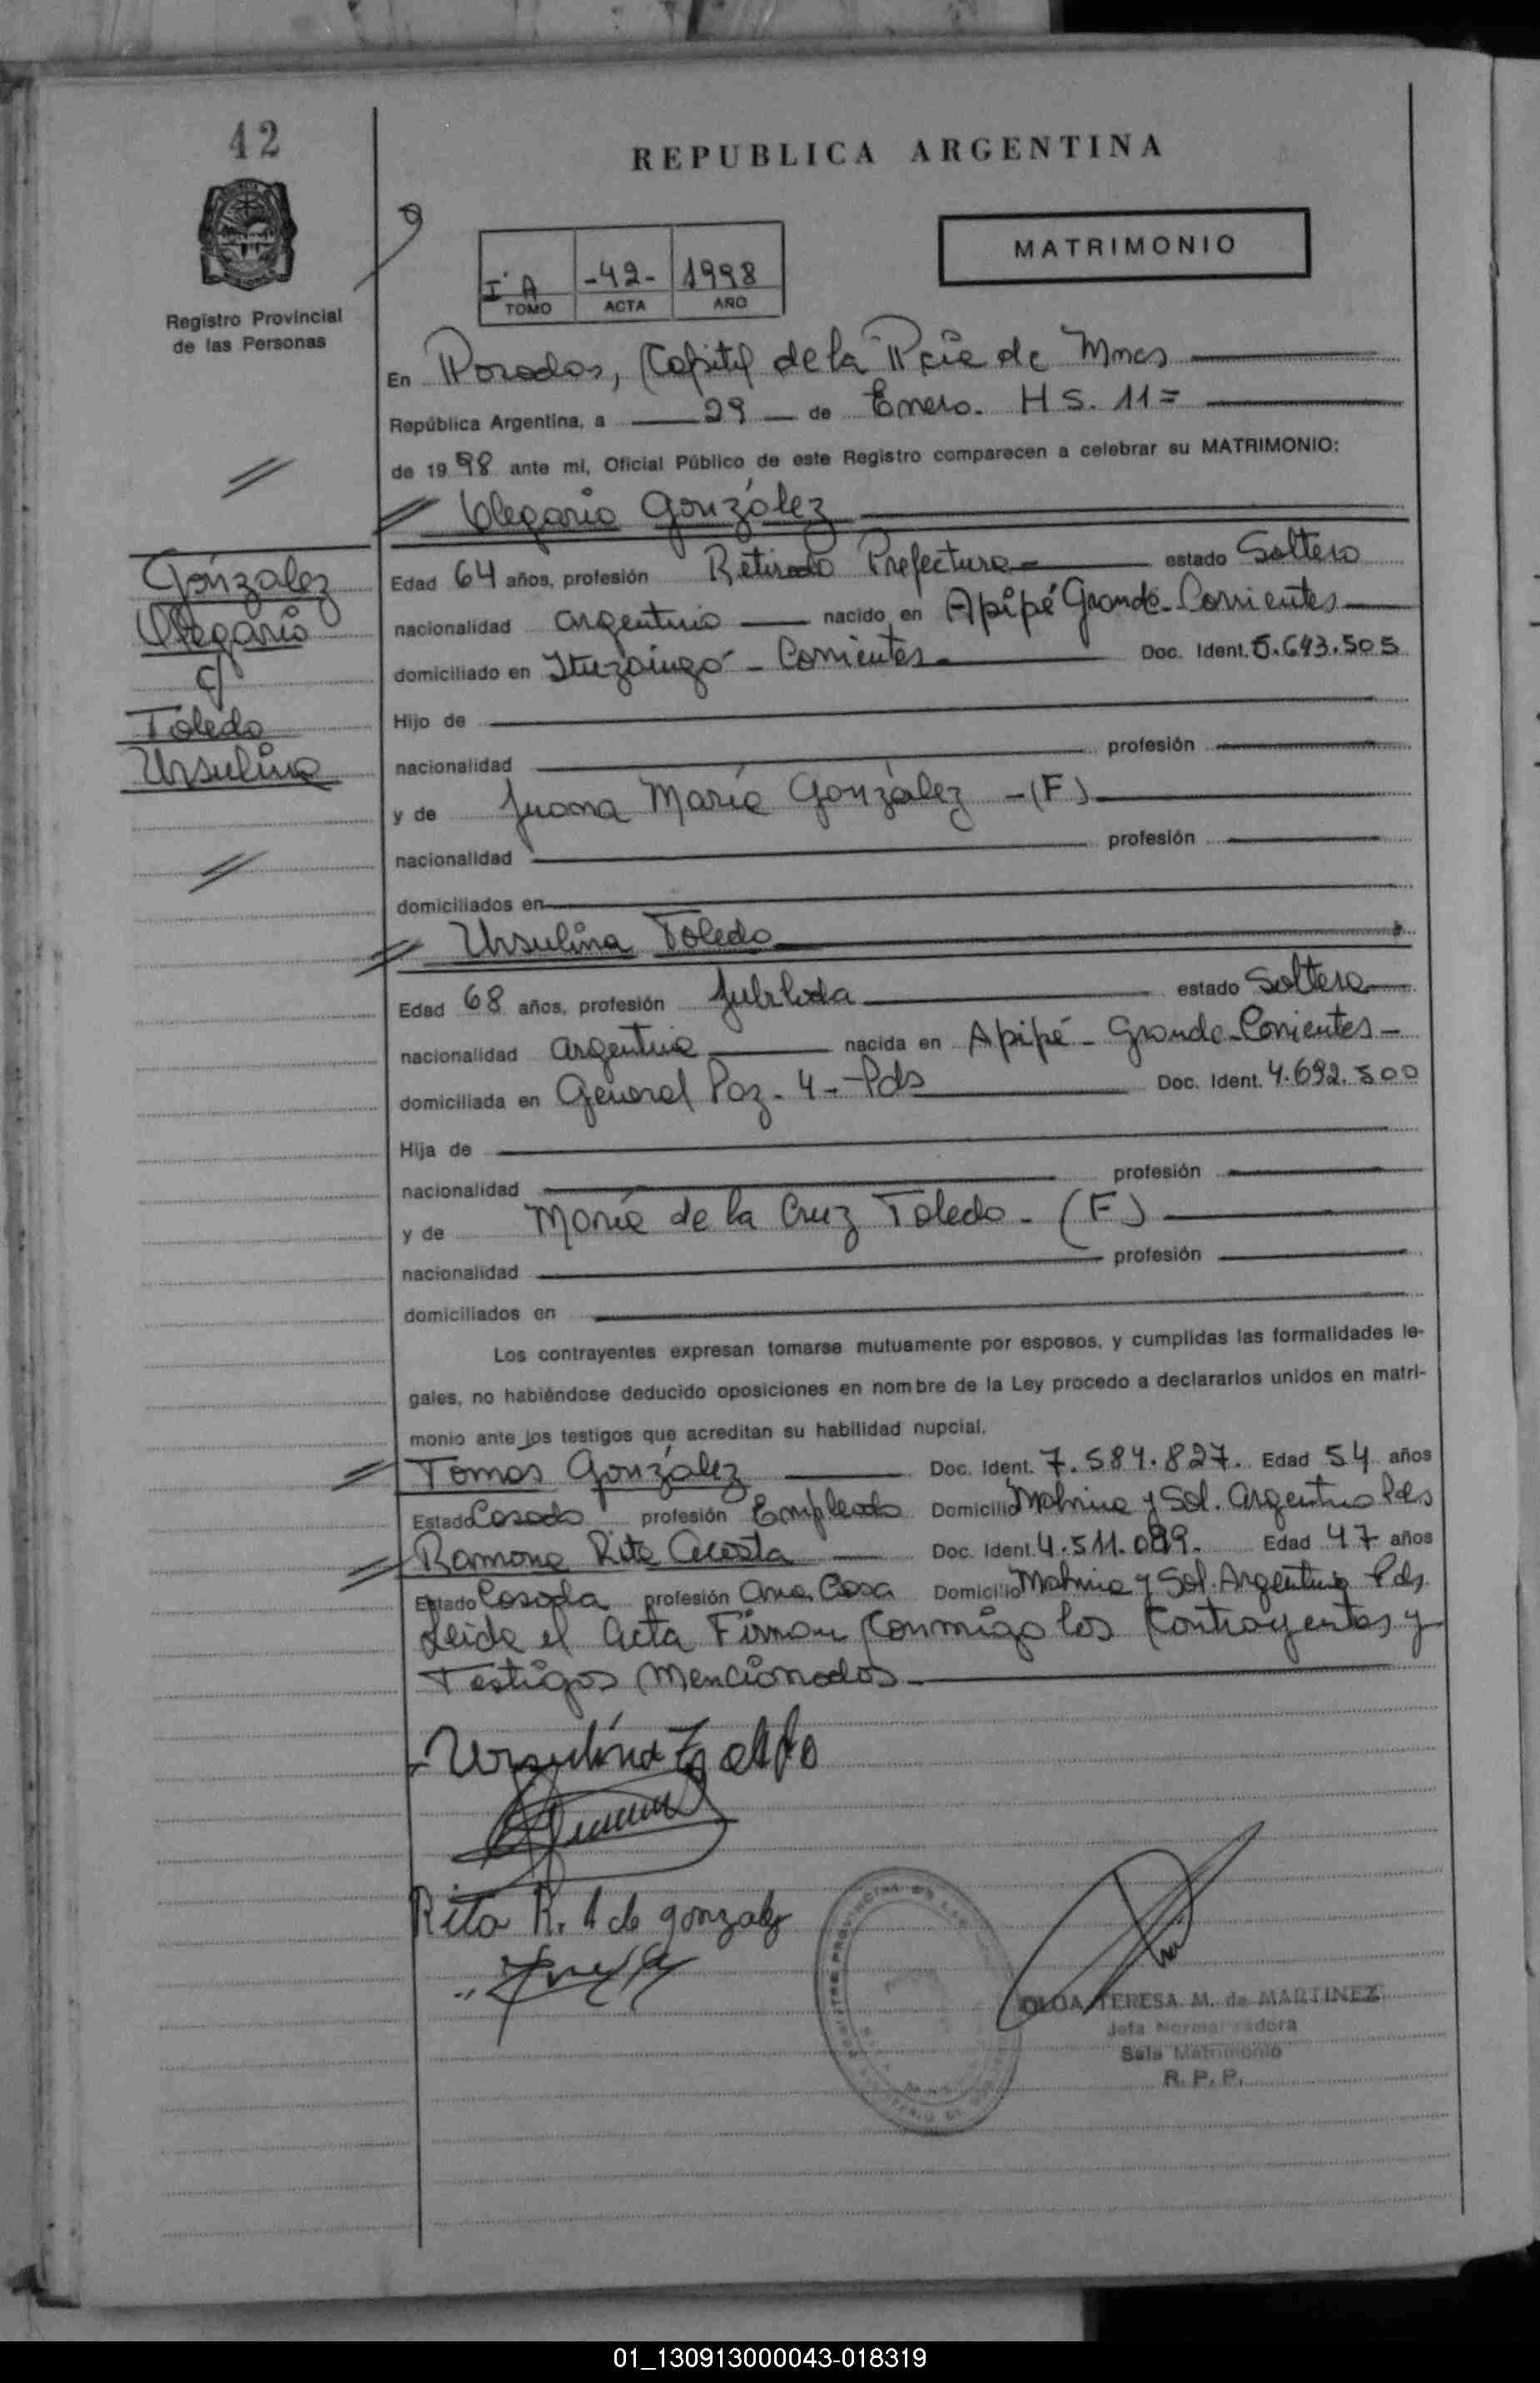 42
REPUBLICA ARGENTINA
MATRIMONIO
I A -42- 1998
TOMO ACTA AÑO
Registro Provincial
de las Personas
En Posadas, Capital de la Pcia de Mnes
República Argentina, a 29 de Enero. HS. 11=
de 1998 ante mi, Oficial Público de este Registro comparecen a celebrar su MATRIMONIO:
Olegario González
González
Olegario
c/
Toledo
Ursulina
Edad 64 años, profesión Retirado Prefectura estado Soltero
nacionalidad argentino nacido en Apipé Grande-Corrientes
domiciliado en Ituzaingó - Corrientes Doc. Ident. 5.643.505
Hijo de
nacionalidad profesión
y de Juana María González -(F)
nacionalidad profesión
domiciliados en
Ursulina Toledo
Edad 68 años, profesión Jubilada estado Soltera
nacionalidad argentina nacida en Apipé - Grande-Corrientes
domiciliada en General Paz - 4 - Pds Doc. Ident. 4.692.500
Hija de
nacionalidad profesión
y de María de la Cruz Toledo - (F)
nacionalidad profesión
domiciliados en
Los contrayentes expresan tomarse mutuamente por esposos, y cumplidas las formalidades le-
gales, no habiéndose deducido oposiciones en nombre de la Ley procedo a declararlos unidos en matri-
monio ante los testigos que acreditan su habilidad nupcial.
Tomas González Doc. Ident. 7.584.827. Edad 54 años
Estado Casado profesión Empleado Domicilio y Sol. Argentino Pds
Ramona Rita Acosta Doc. Ident. 4.511.099. Edad 47 años
Estado Casada profesión Ama Casa Domicilio y Sol. Argentino Pds
Leida el Acta Firman Conmigo los Contrayentes y
Testigos Mencionados
Ursulina Toledo
Rita R. A de gonzalez
OLGA TERESA M. de MARTINEZ
Jefa Normalizadora
Sala Matrimonio
R. P. P.
01_130913000043-018319